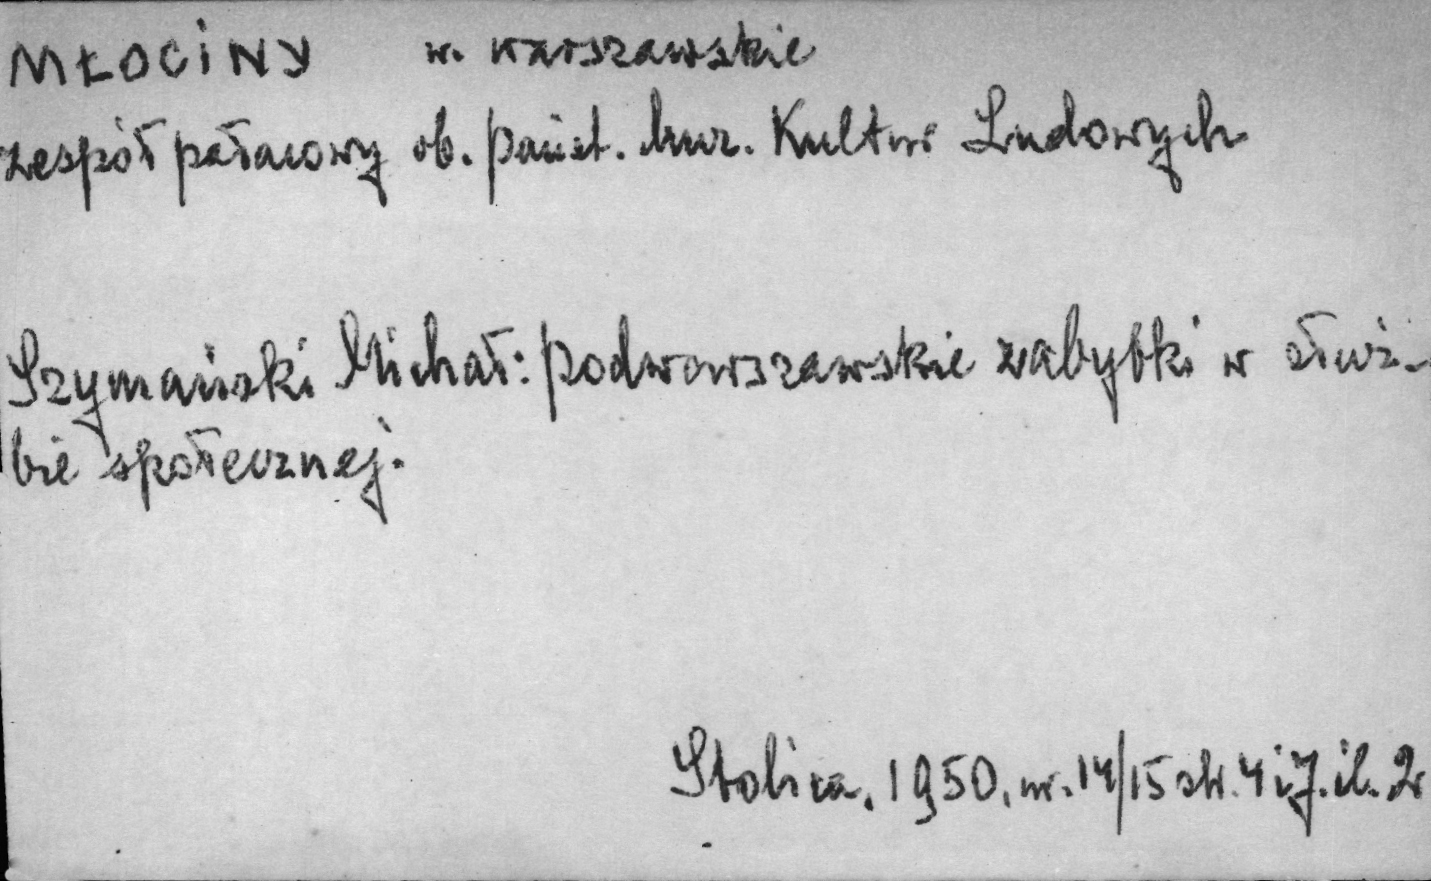 MŁOCINY w. warszawskie
zespół pałacowy ob. Państ. Muz. Kultur Ludowych
Szymański Michał: Podwarszawskie zabytki w służ-
bie społecznej.
Stolica, 1950, nr. 14/15 str. 4 i 7. il. 2